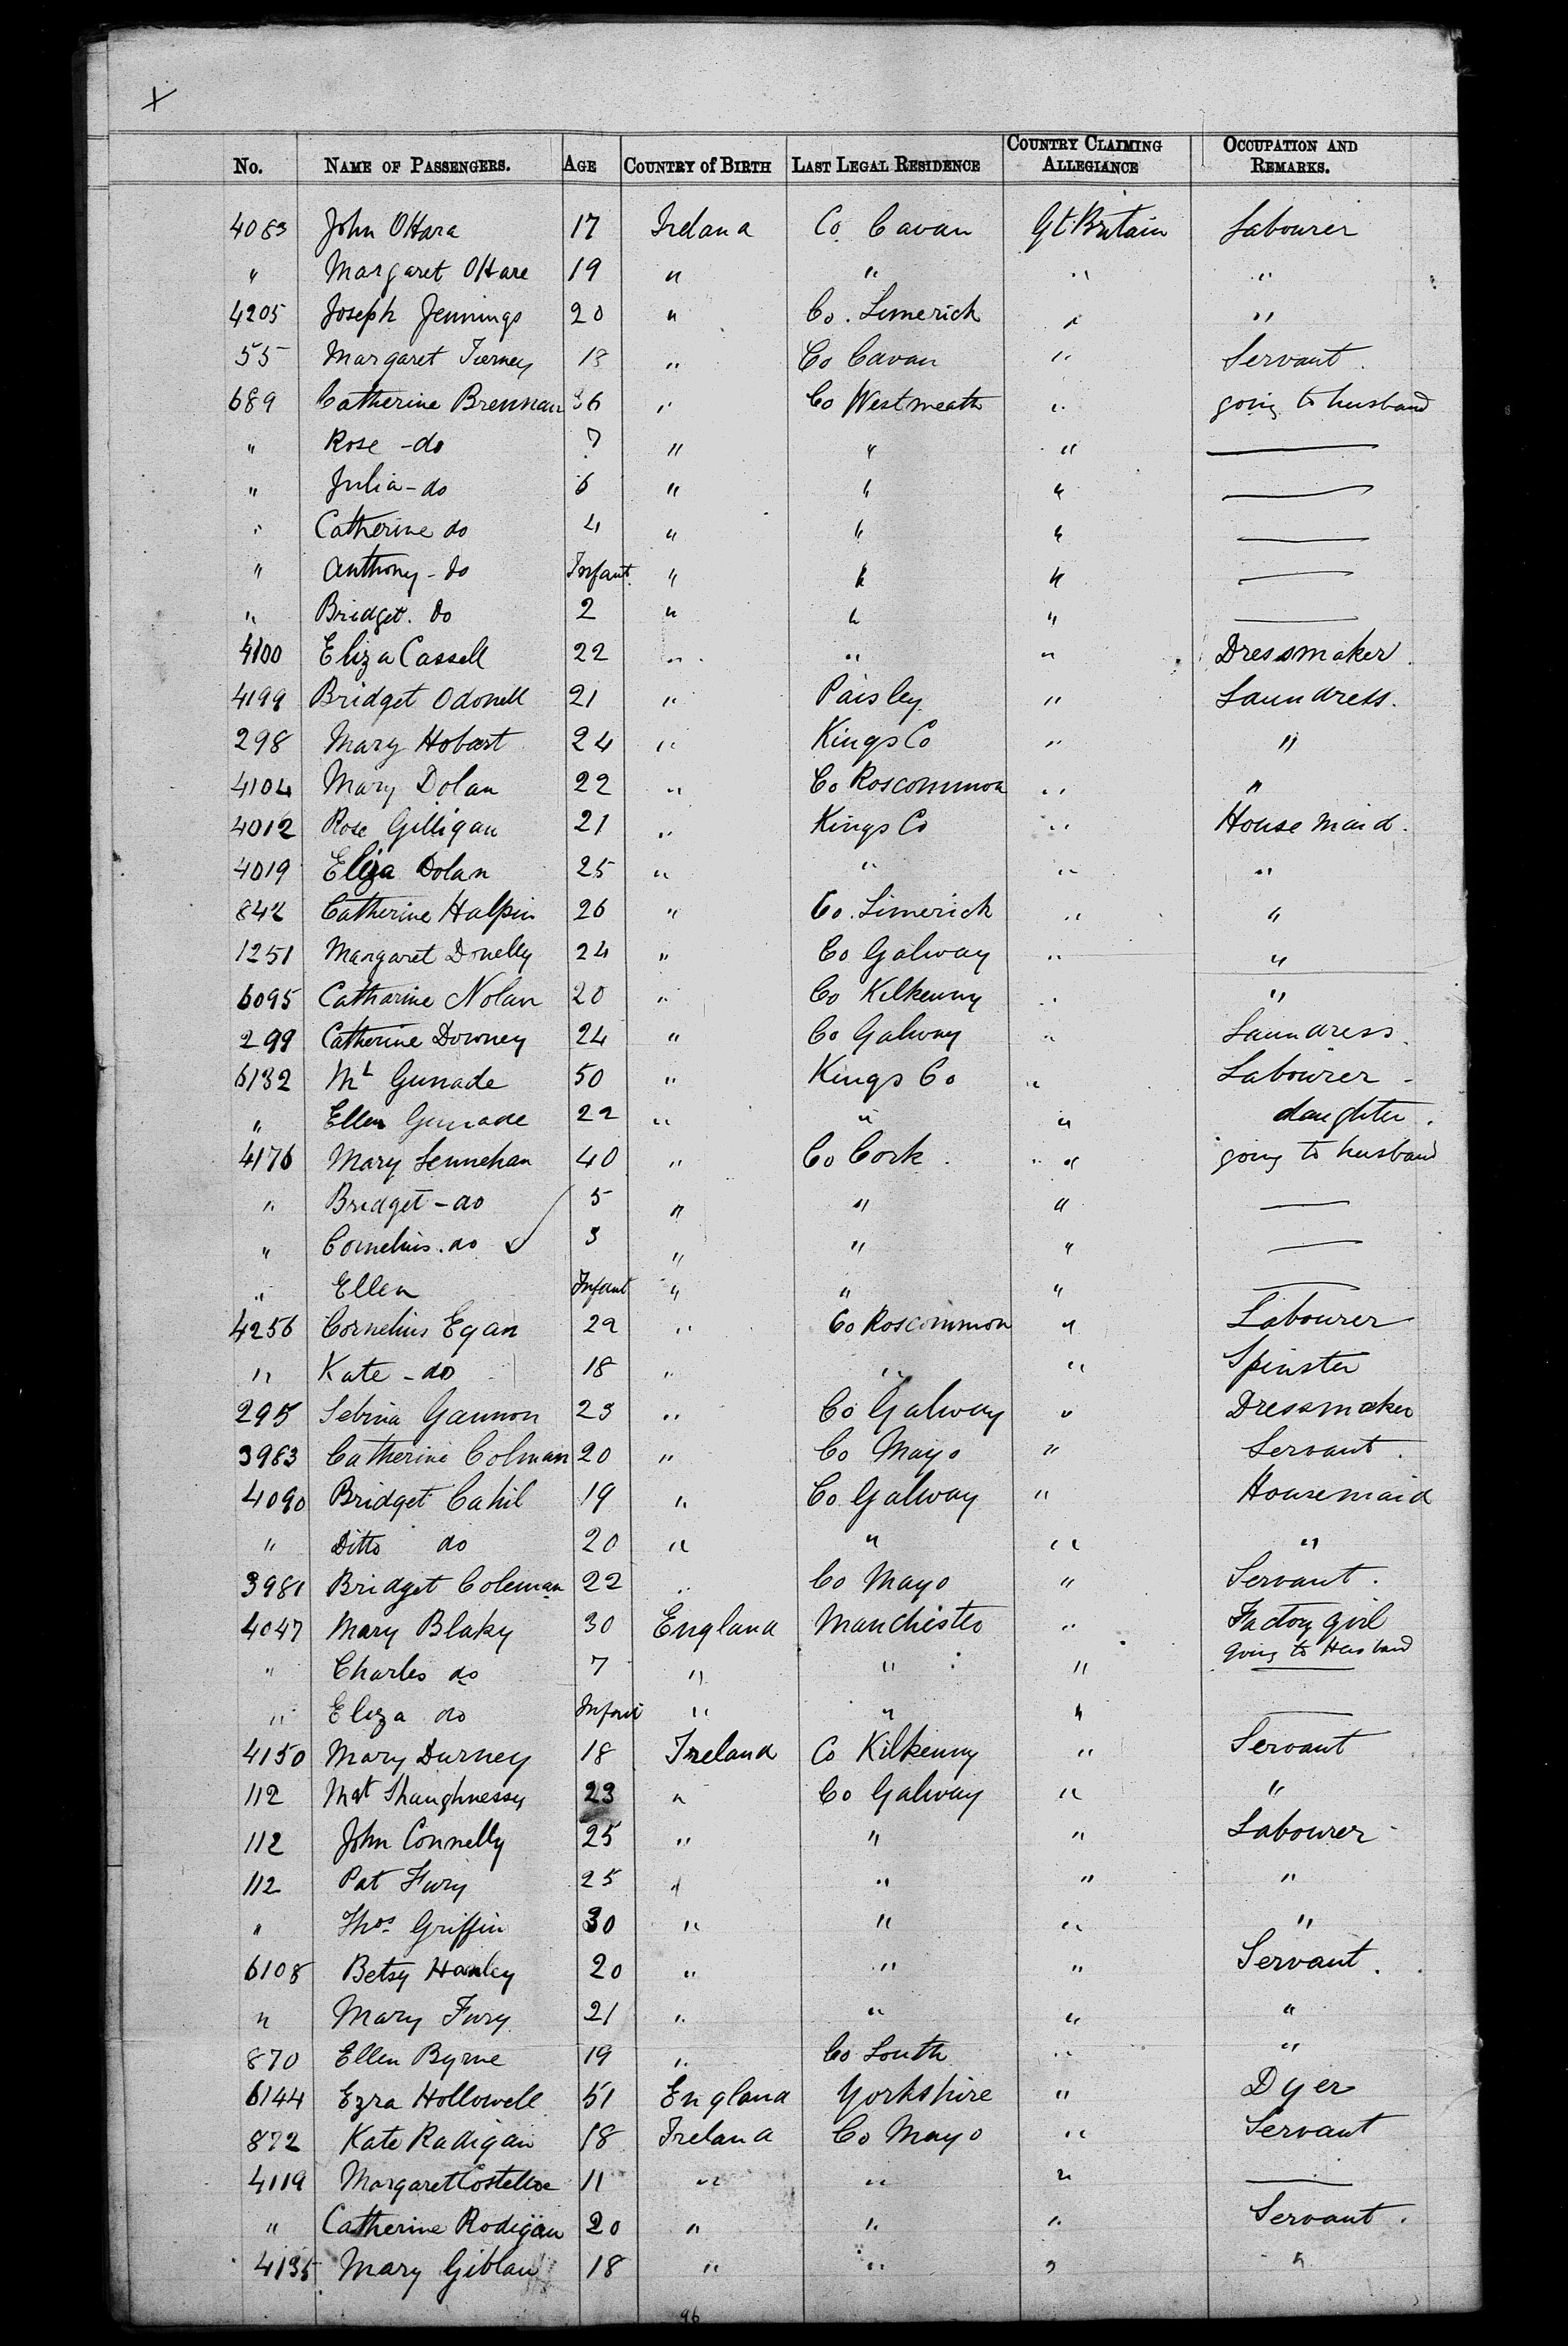 No. NAME OF PASSENGERS. AGE COUNTRY of BIRTH LAST LEGAL RESIDENCE COUNTRY CLAIMING ALLEGIANCE OCCUPATION AND REMARKS.
4083 John OHara 17 Ireland Co. Cavan Gt. Britain Labourer
" Margaret OHare 19 " " " "
4205 Joseph Jennings 20 " Co. Limerick " "
55 Margaret Tierney 18 " Co Cavan " Servant.
689 Catherine Brennan 36 " Co Westmeath " going to husband
" Rose - do 7 " " " —
" Julia - do 6 " " " —
" Catherine do 4 " " " —
" Anthony - do Infant. " " " —
" Bridget. do 2 " " " —
4100 Eliza Cassell 22 " " " Dressmaker.
4199 Bridget Odonell 21 " Paisley " Laundress.
298 Mary Hobart 24 " Kings Co " "
4104 Mary Dolan 22 " Co Roscommon " "
4012 Rose Gilligan 21 " Kings Co " House maid.
4019 Eliza Dolan 25 " " " "
842 Catherine Halpin 26 " Co. Limerick " "
1251 Margaret Donelly 24 " Co Galway " "
6095 Catharine Nolan 20 " Co Kilkenny " "
299 Catherine Downey 24 " Co Galway " Laundress.
6132 ML Gunade 50 " Kings Co " Labourer -
" Ellen Gunade 22 " " " daughter.
4176 Mary Lennehan 40 " Co Cork. " going to husband
" Bridget - do 5 " " " —
" Cornelius. do ✓ 3 " " " —
" Ellen Infant " " " —
4256 Cornelius Egan 22 " Co Roscommon " Labourer
" Kate - do 18 " " " Spinster
295 Sebina Gannon 23 " Co Galway " Dressmaker
3983 Catherine Colman 20 " Co Mayo " Servant.
4090 Bridget Cahil 19 " Co Galway " Housemaid
" Ditto do 20 " " " "
3981 Bridget Coleman 22 " Co Mayo " Servant.
4047 Mary Blaky 30 England Manchester " Factory girl
going to Husband
" Charles do 7 " " " —
" Eliza do Infant " " " —
4150 Mary Durney 18 Ireland Co Kilkenny " Servant
112 Mat Shaughnessy 23 " Co Galway " "
112 John Connelly 25 " " " Labourer
112 Pat Fury 25 " " " "
" Thos Griffin 30 " " " "
6108 Betsy Hanley 20 " " " Servant.
" Mary Fury 21 " " " "
870 Ellen Byrne 19 " Co Louth " "
6144 Ezra Hollowell 51 England Yorkshire " Dyer
872 Kate Radigan 18 Ireland Co Mayo " Servant
4119 Margaret Costelloe 11 " " " —
" Catherine Rodigan 20 " " " Servant.
4135 Mary Giblan 18 " " " "
96